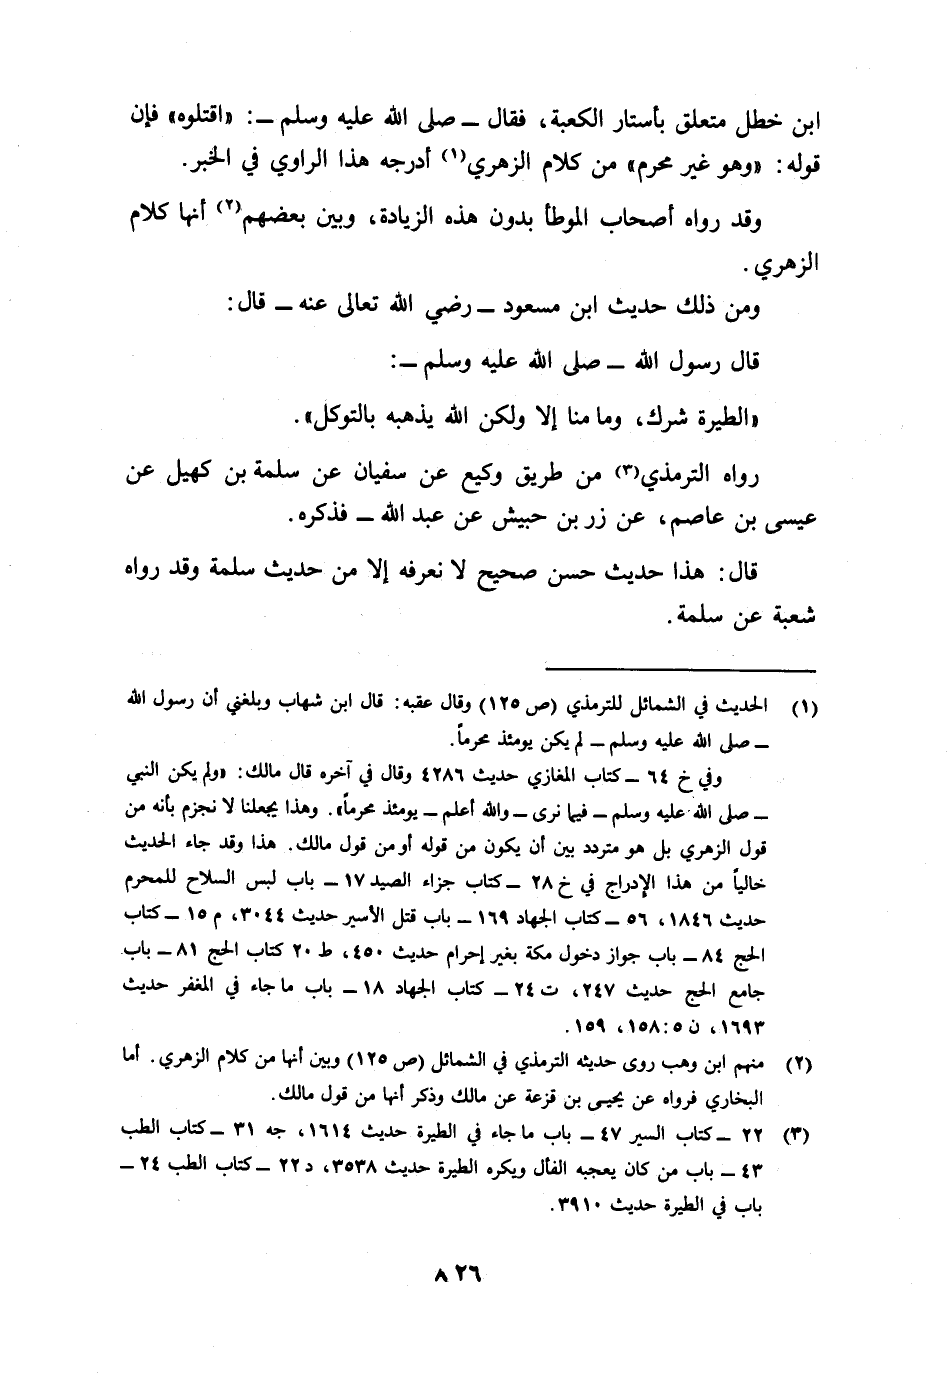 ابن خطل متعلق بأستار الكعبة، فقال ــ صلى الله عليه وسلم ــ: «اقتلوه» فإن
قوله: «وهو غير محرم» من كلام الزهري(١) أدرجه هذا الراوي في الخبر.
وقد رواه أصحاب الموطأ بدون هذه الزيادة، وبين بعضهم(٢) أنها كلام
الزهري.
ومن ذلك حديث ابن مسعود ــ رضي الله تعالى عنه ــ قال:
قال رسول الله ــ صلى الله عليه وسلم ــ:
«الطيرة شرك، وما منا إلا ولكن الله يذهبه بالتوكل».
رواه الترمذي(٣) من طريق وكيع عن سفيان عن سلمة بن كهيل عن
عيسى بن عاصم، عن زر بن حبيش عن عبد الله ــ فذكره.
قال: هذا حديث حسن صحيح لا نعرفه إلا من حديث سلمة وقد رواه
شعبة عن سلمة.
(١) الحديث في الشمائل للترمذي (ص ١٢٥) وقال عقبه: قال ابن شهاب وبلغني أن رسول الله
ــ صلى الله عليه وسلم ــ لم يكن يومئذ محرماً.
وفي خ ٦٤ ــ كتاب المغازي حديث ٤٢٨٦ وقال في آخره قال مالك: «ولم يكن النبي
ــ صلى الله عليه وسلم ــ فيما نرى ــ والله أعلم ــ يومئذ محرماً». وهذا يجعلنا لا نجزم بأنه من
قول الزهري بل هو متردد بين أن يكون من قوله أو من قول مالك. هذا وقد جاء الحديث
خالياً من هذا الإدراج في خ ٢٨ ــ كتاب جزاء الصيد ١٧ ــ باب لبس السلاح للمحرم
حديث ١٨٤٦، ٥٦ ــ كتاب الجهاد ١٦٩ ــ باب قتل الأسير حديث ٣٠٤٤، م ١٥ ــ كتاب
الحج ٨٤ ــ باب جواز دخول مكة بغير إحرام حديث ٤٥٠، ط ٢٠ كتاب الحج ٨١ ــ باب
جامع الحج حديث ٢٤٧، ت ٢٤ ــ كتاب الجهاد ١٨ ــ باب ما جاء في المغفر حديث
١٦٩٣، ن ٥: ١٥٨، ١٥٩.
(٢) منهم ابن وهب روى حديثه الترمذي في الشمائل (ص ١٢٥) وبين أنها من كلام الزهري. أما
البخاري فرواه عن يحيى بن قزعة عن مالك وذكر أنها من قول مالك.
(٣) ٢٢ ــ كتاب السير ٤٧ ــ باب ما جاء في الطيرة حديث ١٦١٤، جه ٣١ ــ كتاب الطب
٤٣ ــ باب من كان يعجبه الفأل ويكره الطيرة حديث ٣٥٣٨، د ٢٢ ــ كتاب الطب ٢٤ ــ
باب في الطيرة حديث ٣٩١٠.
٨٢٦